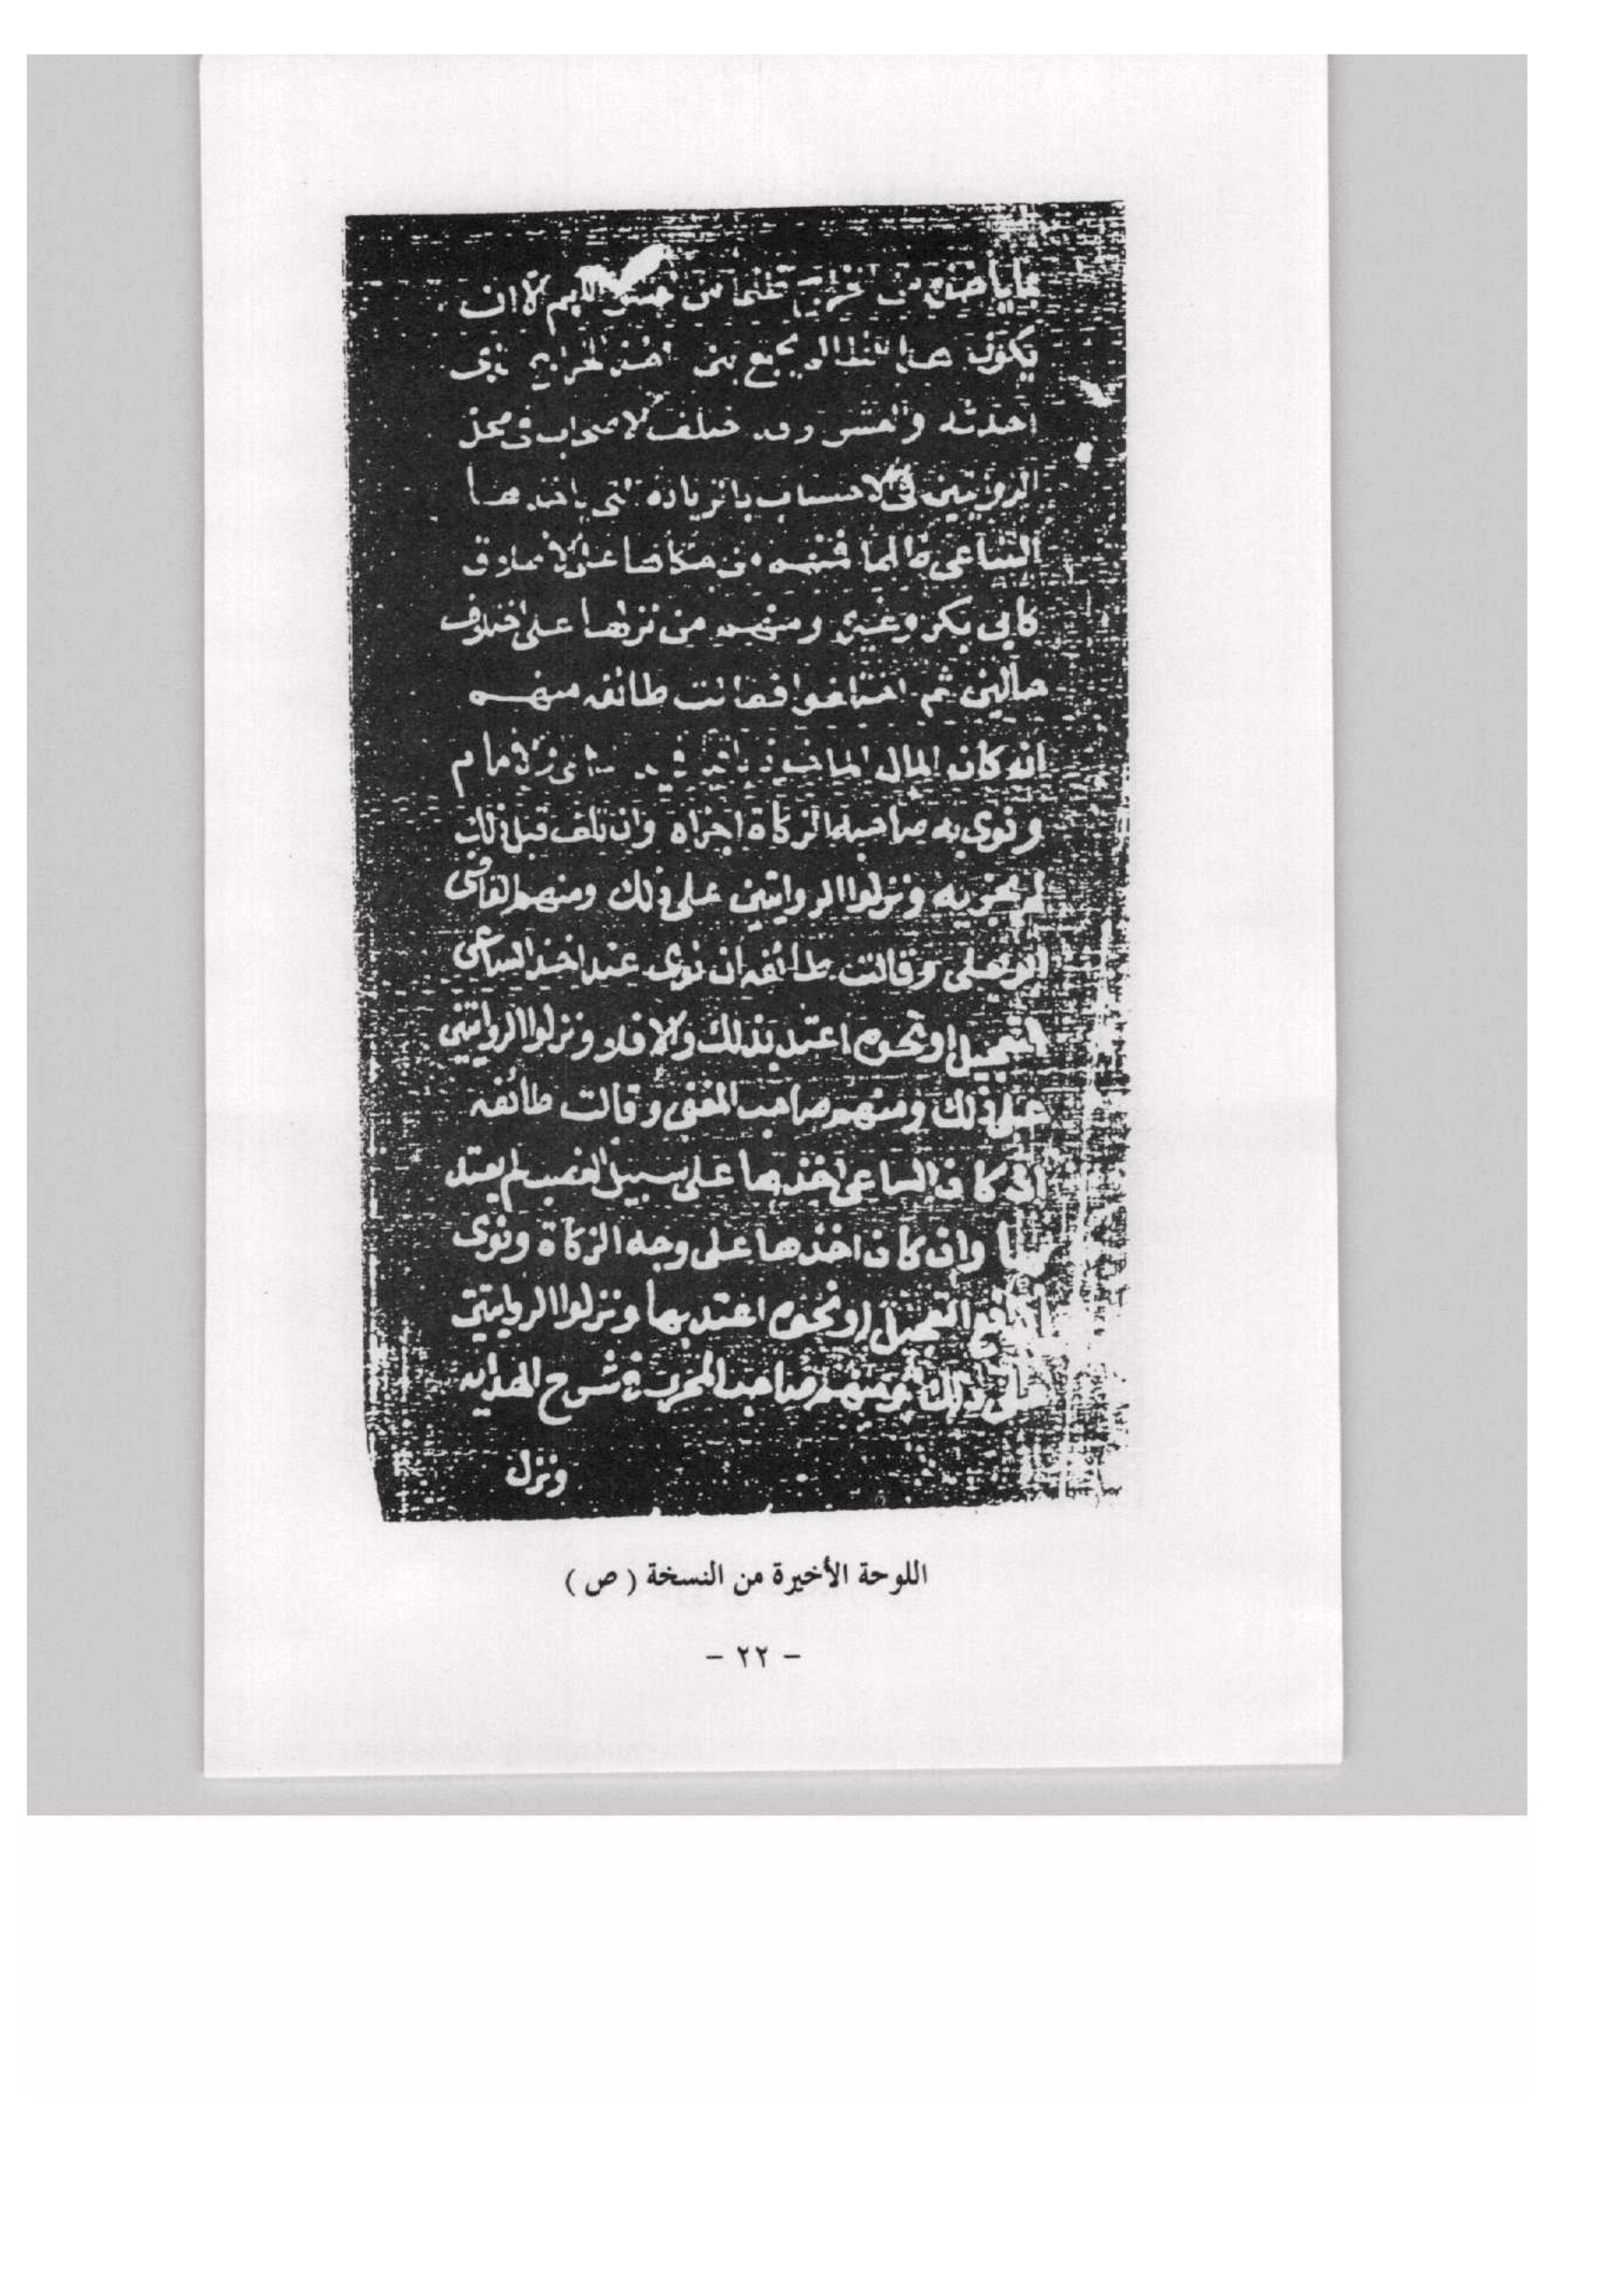 من خراج ظلما من الا ان
يكون هذا يجمع بين اخذ الخراج
احدثه والعشر وقد الاصحاب في
الروايتين في الاحتساب بالزيادة التي ياخذها
الساعي ظالما فمنهم من حكاها على الاطلاق
كابي بكر وغيره ومنهم من نزلها على اختلاف
حالين ثم اختلفوا فقالت طائفه منهم
انه كان المال الامام
ونوى به صاحبه الزكاة اجزاه وان تلف قبل ذلك
لم يجزيه ونزلوا الروايتين على ذلك ومنهم القاضى
ابو يعلى وقالت طائفه ان نوى عند اخذ الساعى
التعجيل او نحوه اعتد بذلك والا فلا ونزلوا الروايتين
على ذلك ومنهم صاحب المغنى وقالت طائفه
ان كان الساعى اخذها على سبيل الغصب لم يعتد
بها وان كان اخذها على وجه الزكاة ونوى
التعجيل او نحوه اعتد بها ونزلوا الروايتين
على ذلك ومنهم صاحب المحرر في شرح الهدايه
ونزل
اللوحة الأخيرة من النسخة ( ص )
- ٢٢ -